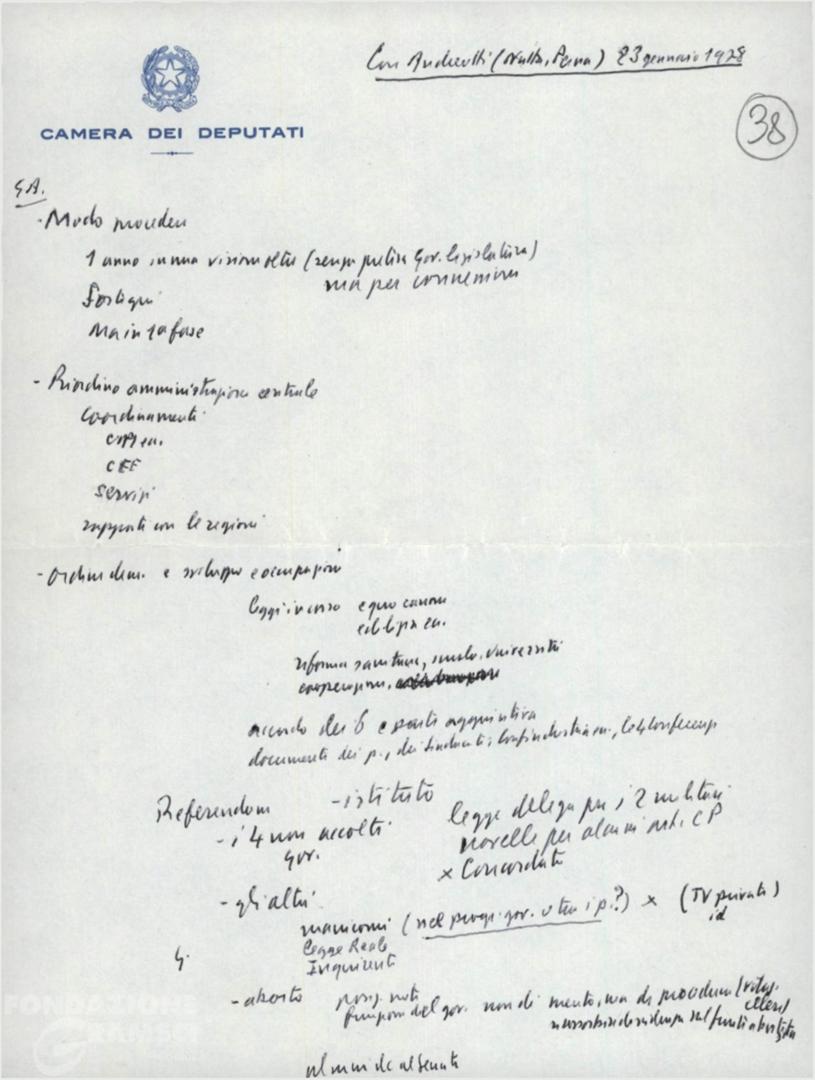 Con Andreotti (Natta, Perna) 23 gennaio 1978
38
CAMERA DEI DEPUTATI
G.A.
- Modo procedere
1 anno in una visione oltre (senza pretesa Gov. legislatura)
ma per connessione
Ma in 1a fase
- Riordino amministrazione centrale
Coordinamenti
CEE
Servizi
rapporti con le regioni
- Ordine dem. e sviluppo e occupazione
leggi in corso equo canone
edilizia ec.
riforma sanitaria, scuola, università
cooperazione,
accordo dei 6 e parte aggiuntiva
documenti dei p., dei sindacati, Confindustria
Referendum - istituto
- i 4 non accolti
gov.
legge delega per i 2 militari
novelle per alcuni art. CP
x Concordato
- gli altri
manicomi (nel progr. gov. o tra i p.?) x (TV private)
id
Legge Reale
Inquirente
G.
- aborto
del gov. non di merito, ma di procedura
al Senato
FONDAZIONE
GRAMSCI